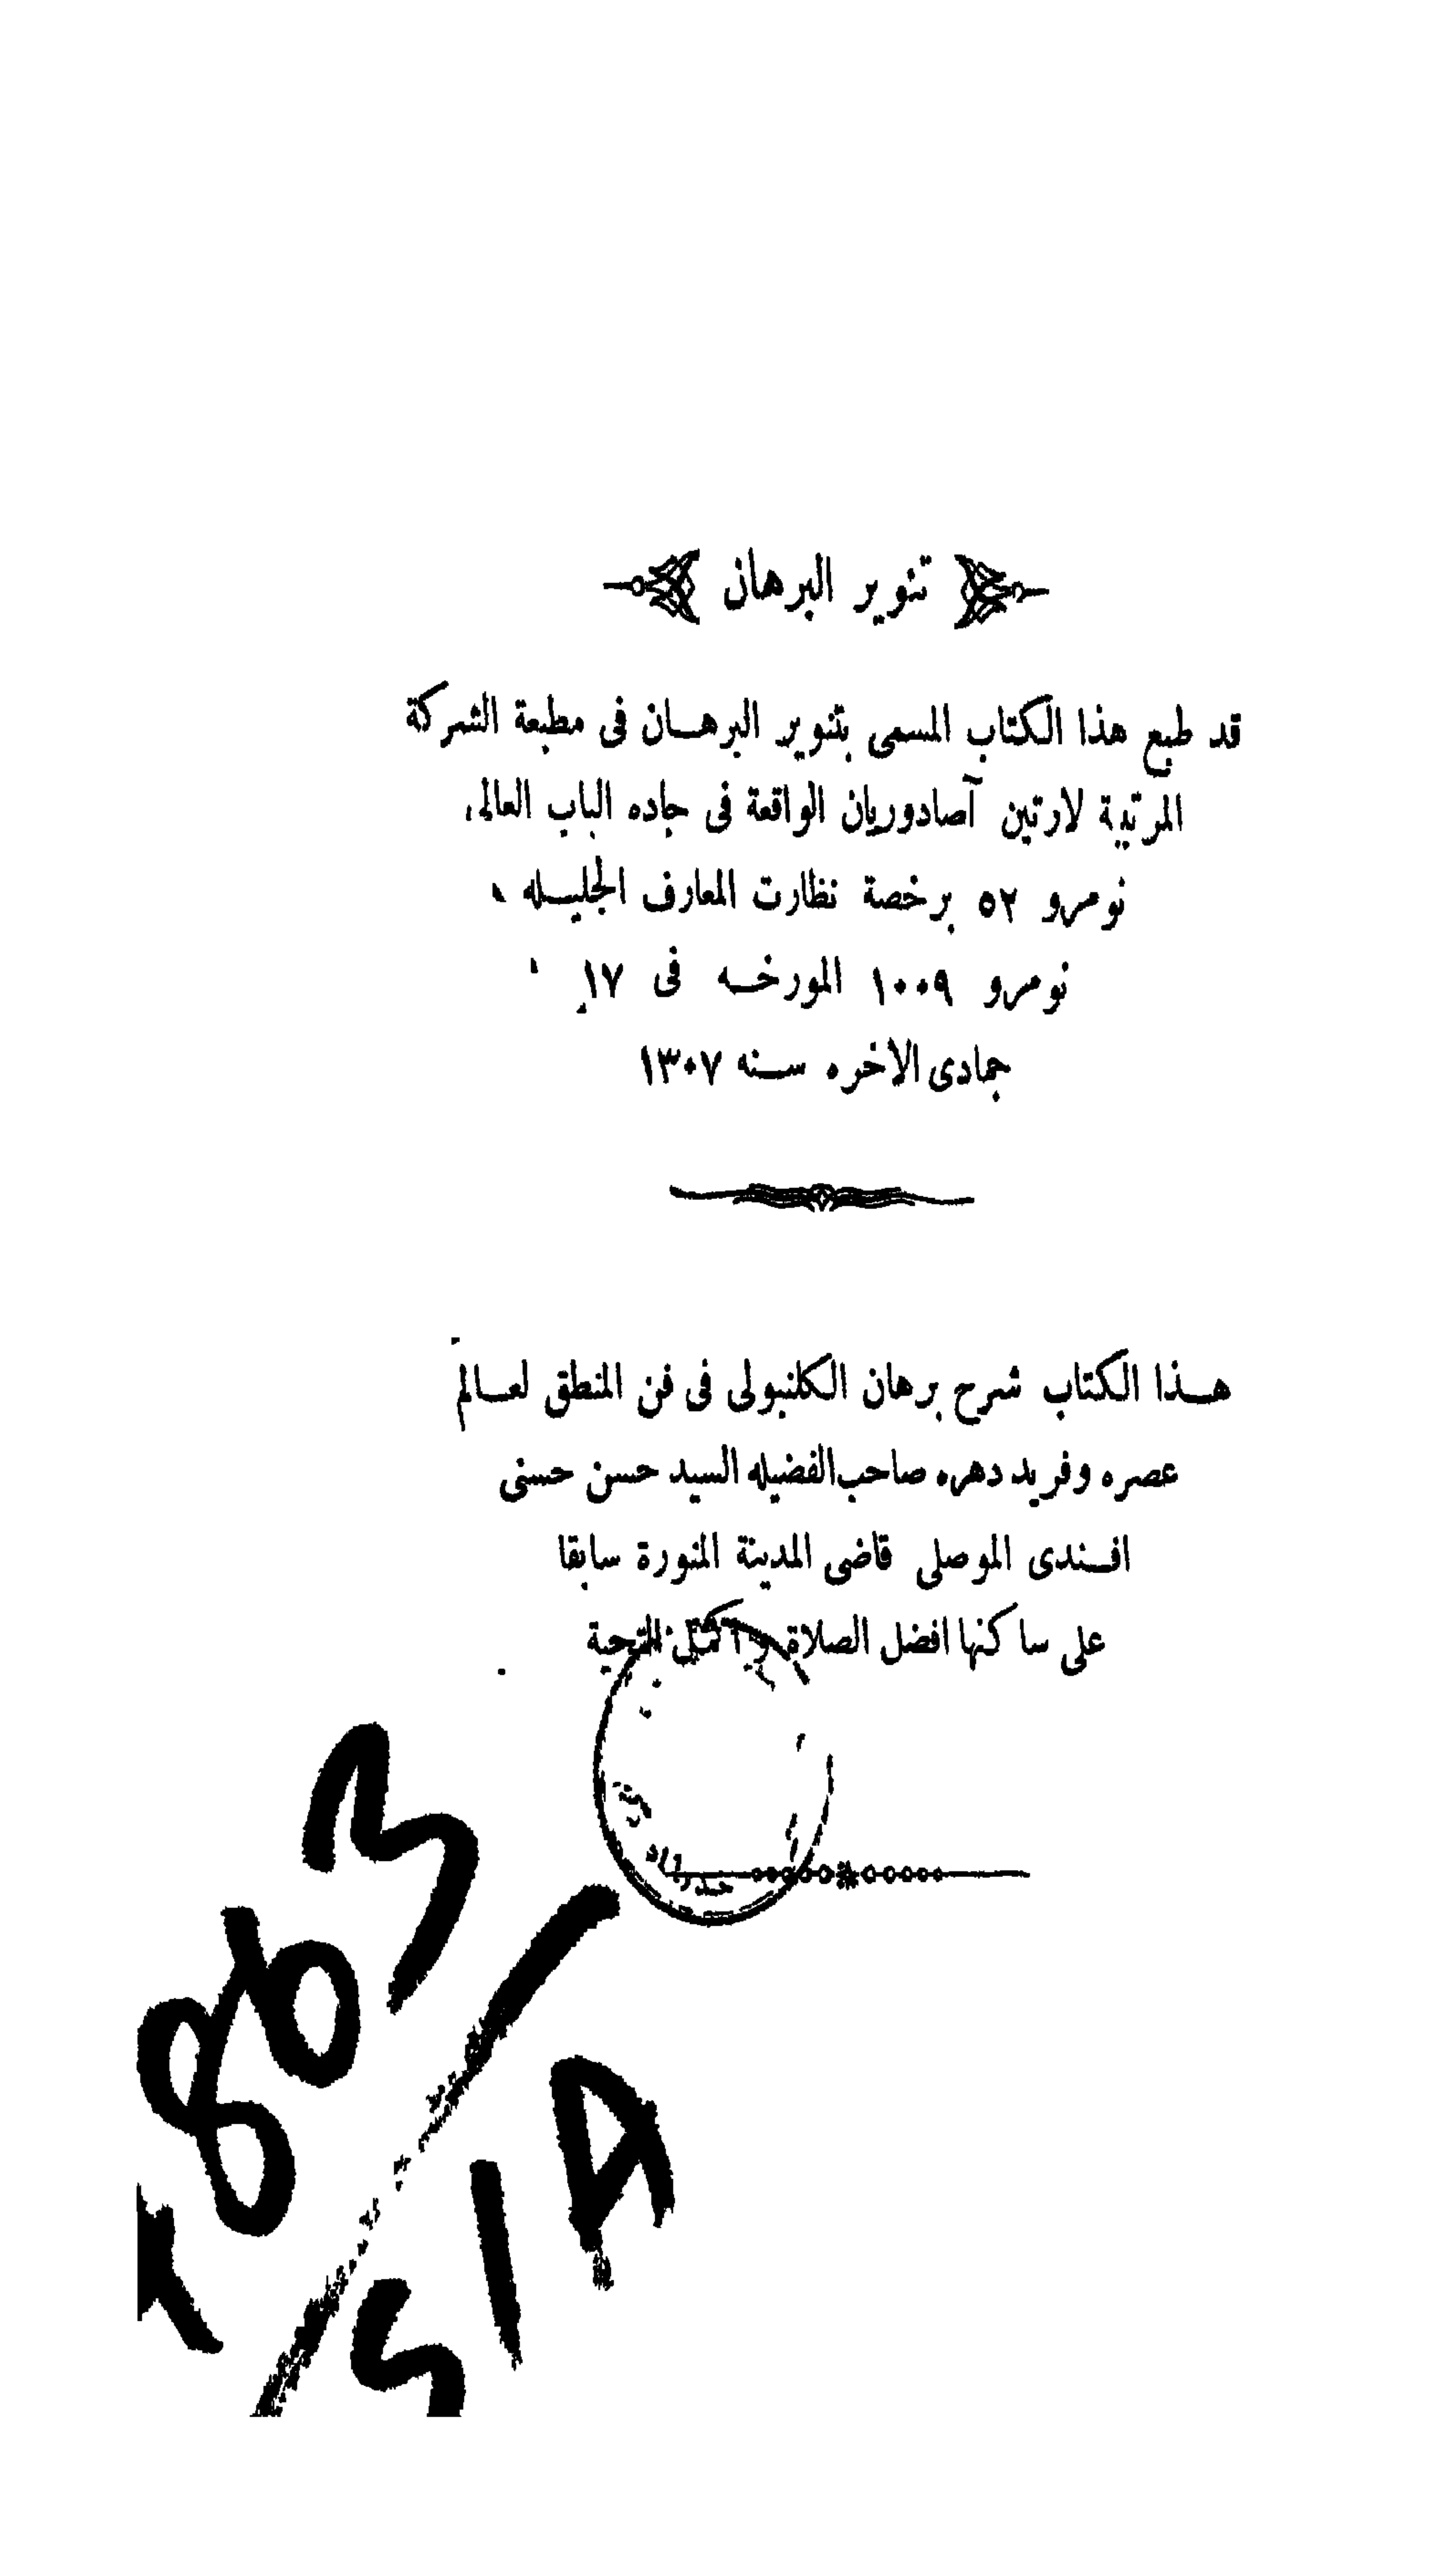 تنوير البرهان
قد طبع هذا الكتاب المسمى بتنوير البرهان فى مطبعة الشركة
المرتبة لارتين آصادوريان الواقعة فى جاده الباب العالى
نومرو ٥٢ برخصة نظارت المعارف الجليله
نومرو ١٠٠٩ المورخه فى ١٧
جمادى الاخره سنه ١٣٠٧
هذا الكتاب شرح برهان الكلنبولى فى فن المنطق لعالم
عصره وفريد دهره صاحب الفضيله السيد حسن حسنى
افندى الموصلى قاضى المدينة المنورة سابقا
على ساكنها افضل الصلاة واكمل التحية
863